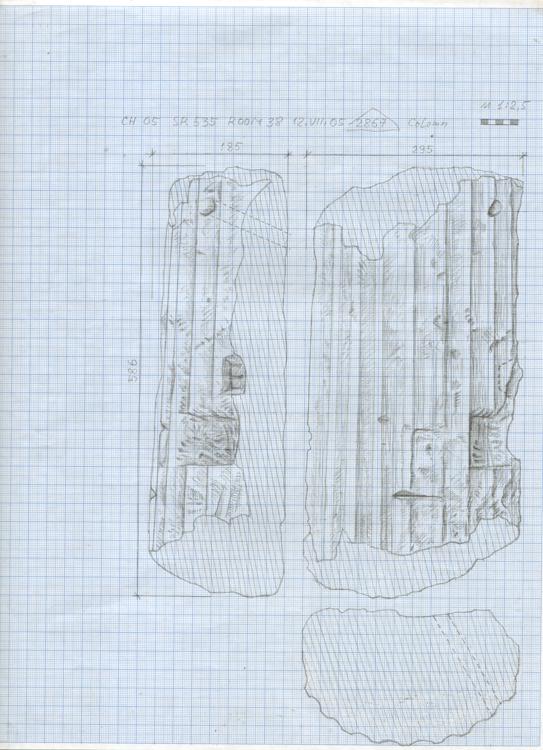 M 1:2,5
CH 05 SR 535 ROOM 38 12.VIII.05 2867 Column
185
295
586